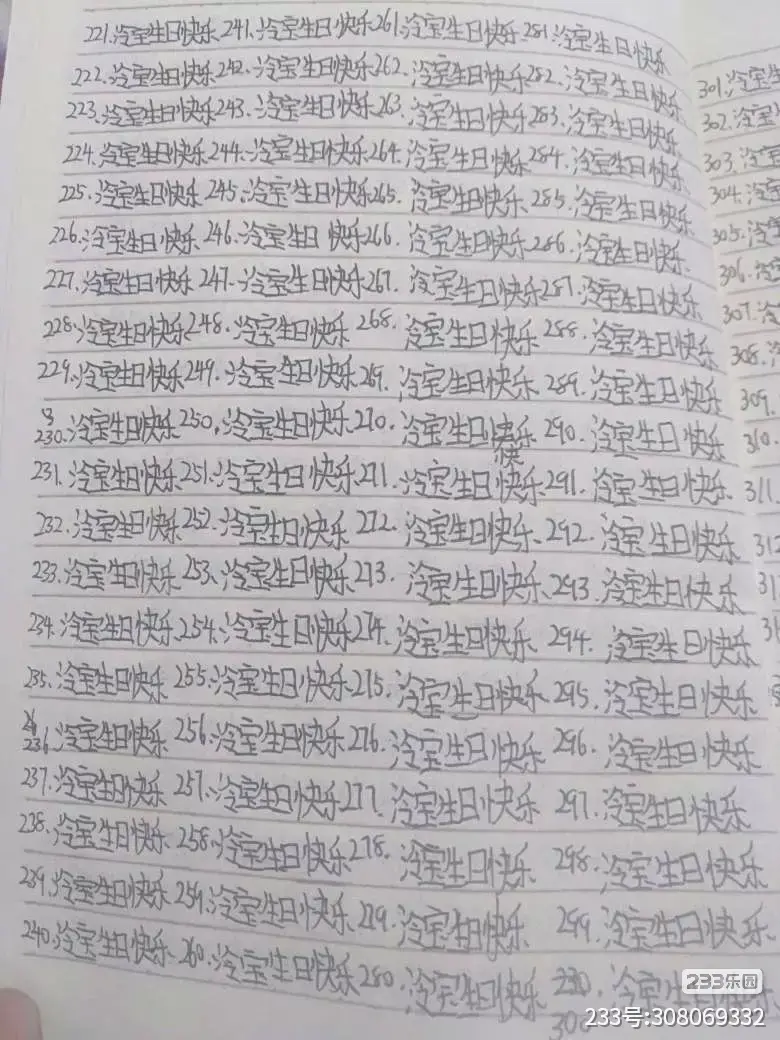 221.冷宝生日快乐 241.冷宝生日快乐 261.冷宝生日快乐 281.冷宝生日快乐
222.冷宝生日快乐 242.冷宝生日快乐 262.冷宝生日快乐 282.冷宝生日快乐
223.冷宝生日快乐 243.冷宝生日快乐 263.冷宝生日快乐 283.冷宝生日快乐
224.冷宝生日快乐 244.冷宝生日快乐 264.冷宝生日快乐 284.冷宝生日快乐
225.冷宝生日快乐 245.冷宝生日快乐 265.冷宝生日快乐 285.冷宝生日快乐
226.冷宝生日快乐 246.冷宝生日快乐 266.冷宝生日快乐 286.冷宝生日快乐
227.冷宝生日快乐 247.冷宝生日快乐 267.冷宝生日快乐 287.冷宝生日快乐
228.冷宝生日快乐 248.冷宝生日快乐 268.冷宝生日快乐 288.冷宝生日快乐
229.冷宝生日快乐 249.冷宝生日快乐 269.冷宝生日快乐 289.冷宝生日快乐
230.冷宝生日快乐 250.冷宝生日快乐 270.冷宝生日快乐 290.冷宝生日快乐
快
231.冷宝生日快乐 251.冷宝生日快乐 271.冷宝生日快乐 291.冷宝生日快乐
232.冷宝生日快乐 252.冷宝生日快乐 272.冷宝生日快乐 292.冷宝生日快乐
233.冷宝生日快乐 253.冷宝生日快乐 273.冷宝生日快乐 293.冷宝生日快乐
234.冷宝生日快乐 254.冷宝生日快乐 274.冷宝生日快乐 294.冷宝生日快乐
235.冷宝生日快乐 255.冷宝生日快乐 275.冷宝生日快乐 295.冷宝生日快乐
236.冷宝生日快乐 256.冷宝生日快乐 276.冷宝生日快乐 296.冷宝生日快乐
237.冷宝生日快乐 257.冷宝生日快乐 277.冷宝生日快乐 297.冷宝生日快乐
238.冷宝生日快乐 258.冷宝生日快乐 278.冷宝生日快乐 298.冷宝生日快乐
239.冷宝生日快乐 259.冷宝生日快乐 279.冷宝生日快乐 299.冷宝生日快乐
240.冷宝生日快乐 260.冷宝生日快乐 280.冷宝生日快乐 冷宝生日快乐
300
301.冷宝生
302.冷宝
303.冷宝
304.冷宝
305.冷
306.冷
307.冷
308.冷
309.
310.
311
312
233乐园
233号:308069332